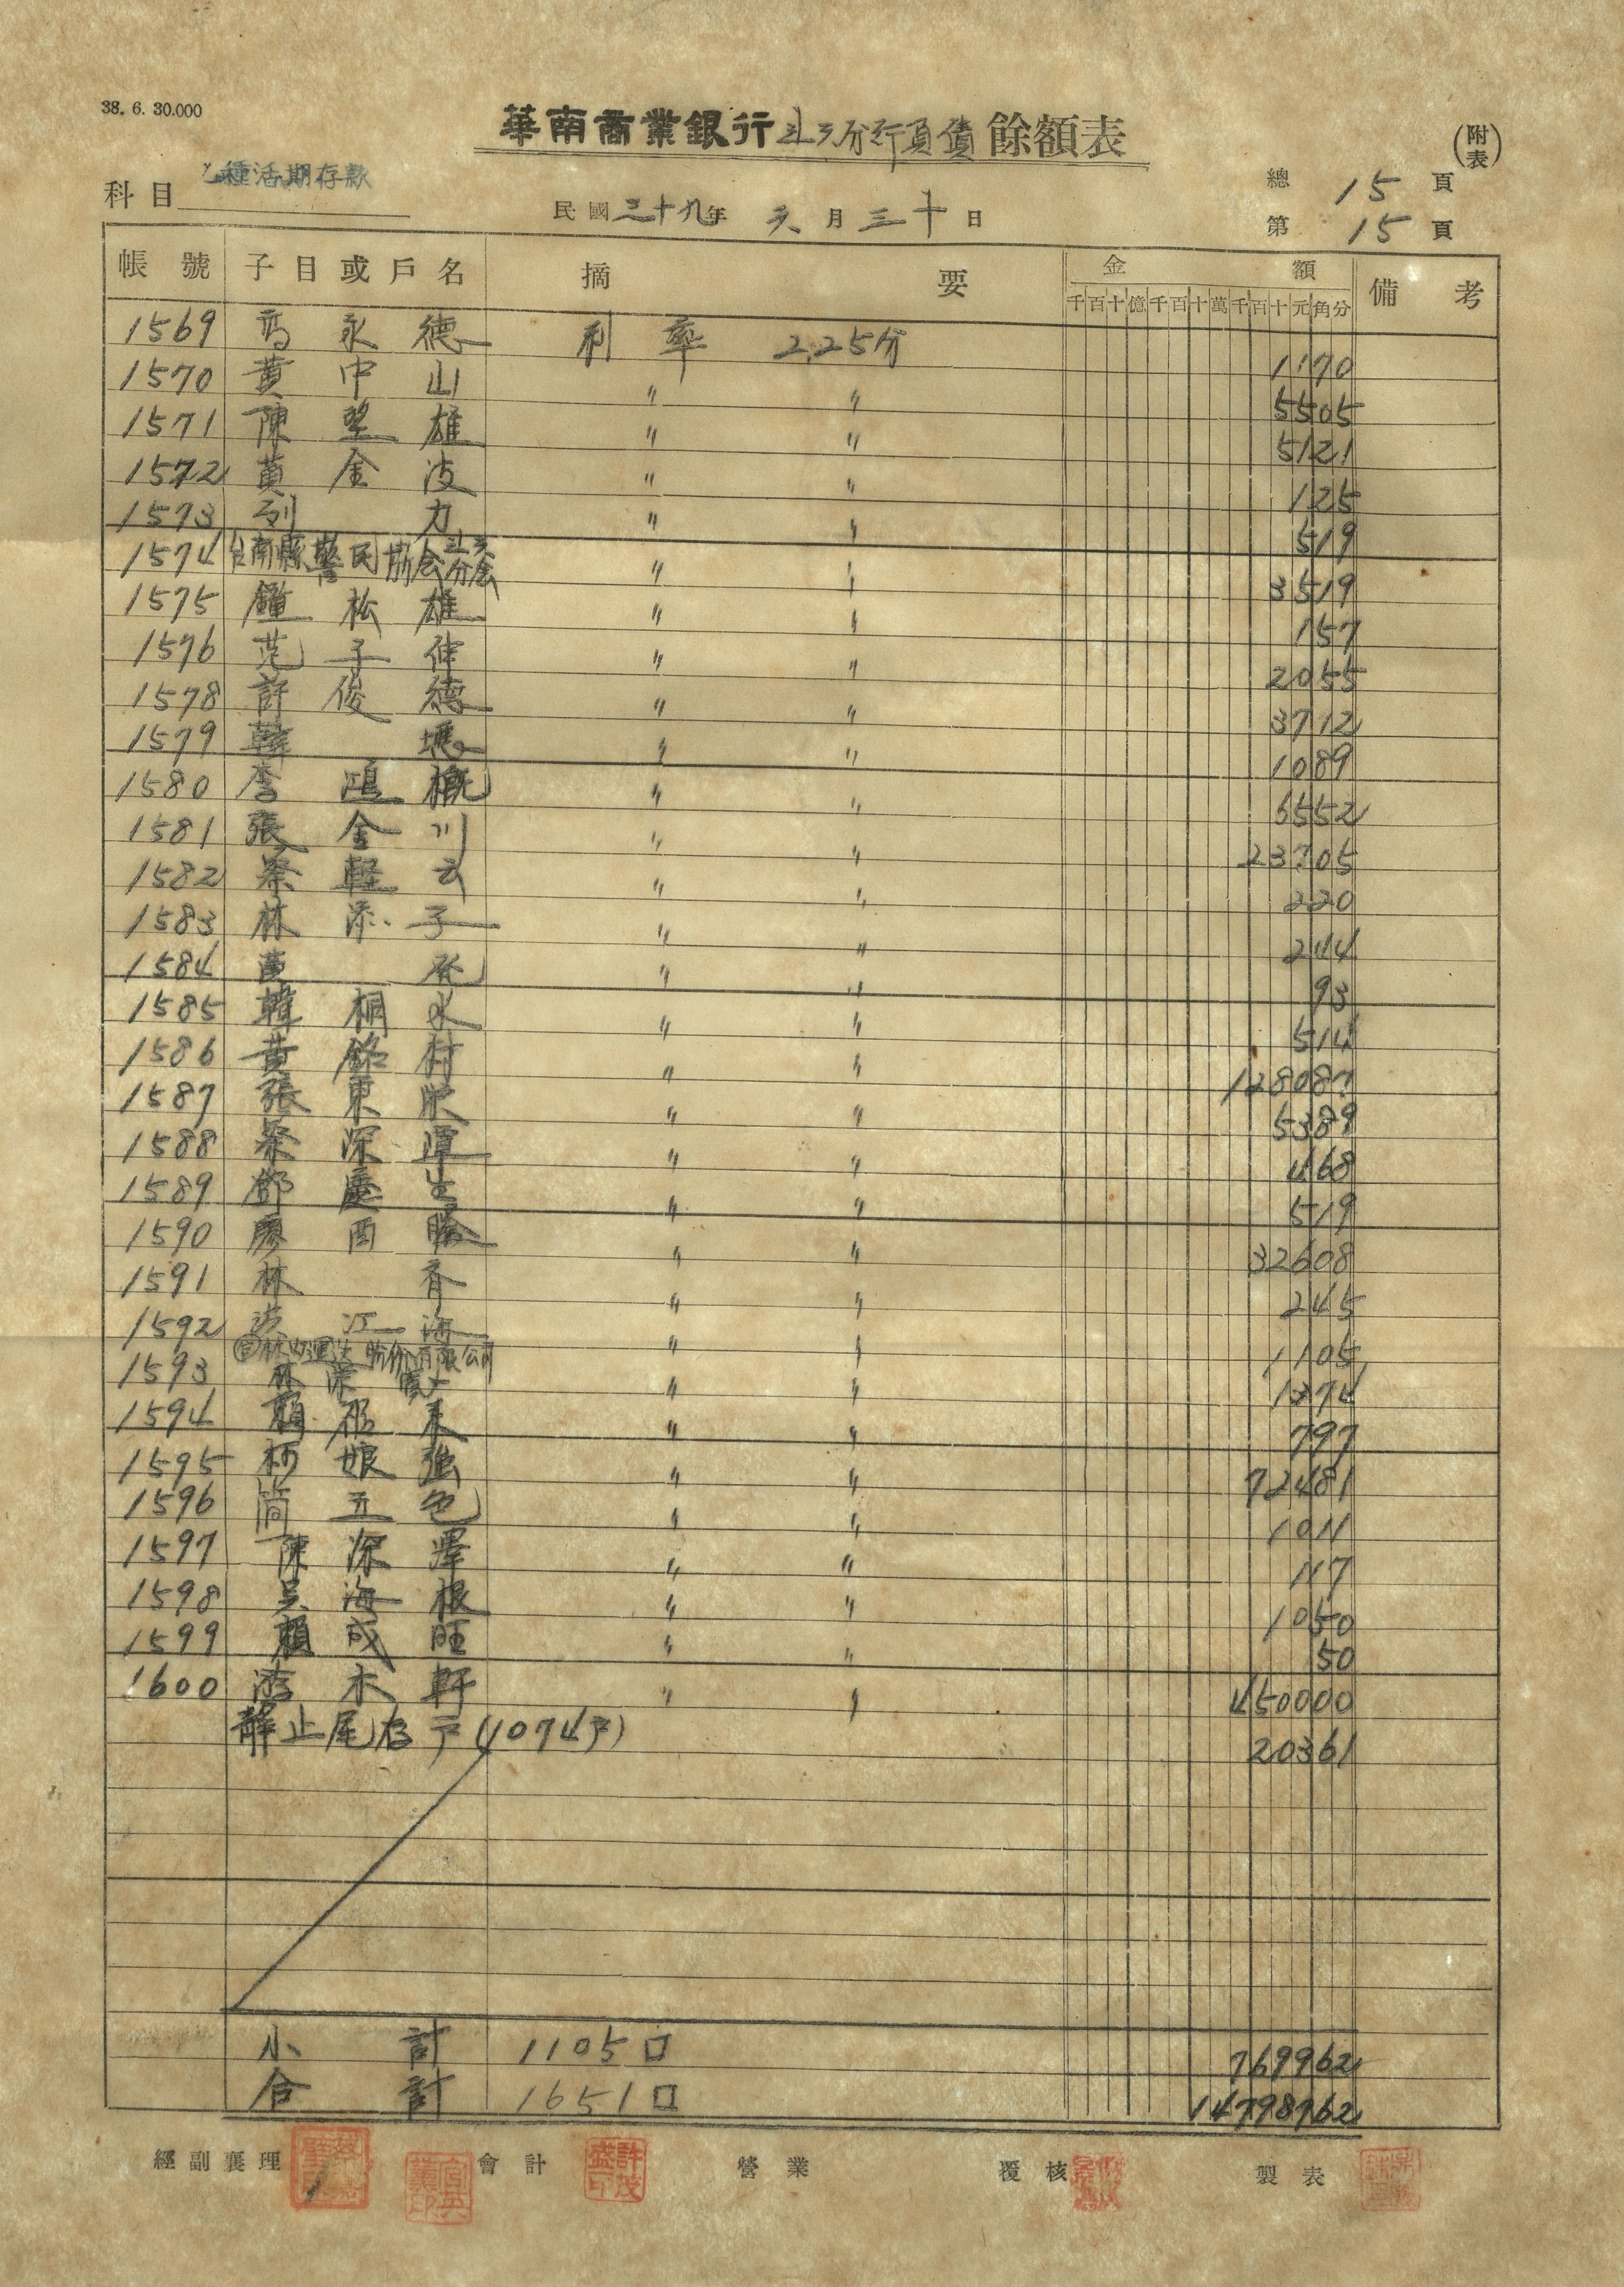 38. 6. 30.000
華南商業銀行斗六分行負債餘額表
(附表)
科目 乙種活期存款
民國三十九年 六月三十日
總 15 頁
第 15 頁
帳號 子目或戶名 摘要 金額 備考
千百十億千百十萬千百十元角分
1569 永德 利率 2.25分 1170
1570 黃中山 〃 〃 5505
1571 陳堅雄 〃 〃 5121
1572 黃金波 〃 〃 125
1573 力 〃 〃 519
1574 台南縣警民協会斗六分会 〃 〃 3519
1575 鐘松雄 〃 〃 157
1576 范子伟 〃 〃 2055
1578 許俊德 〃 〃 3712
1579 韓 〃 〃 1089
1580 李鴻概 〃 〃 6552
1581 張金川 〃 〃 23705
1582 蔡輕云 〃 〃 220
1583 林添子 〃 〃 244
1584 黃 〃 〃 93
1585 韓桐水 〃 〃 514
1586 黃銘村 〃 〃 128087
1587 張東 〃 〃 5389
1588 蔡深潭 〃 〃 468
1589 鄧慶生 〃 〃 519
1590 廖酉勝 〃 〃 32608
1591 林香 〃 〃 245
1592 洪江海 〃 〃 1105
1593 林 股份有限公司 〃 〃 1374
1594 賴 〃 〃 797
1595 柯娘強 〃 〃 72481
1596 簡五色 〃 〃 1011
1597 陳深澤 〃 〃 117
1598 吴海根 〃 〃 1050
1599 賴成旺 〃 〃 50
1600 游木軒 〃 〃 450000
静止尾存戶(1074戶) 20361
小計 1105口 769962
合計 1651口 14798762
經副襄理 會計 許茂盛印 營業 覆核 製表